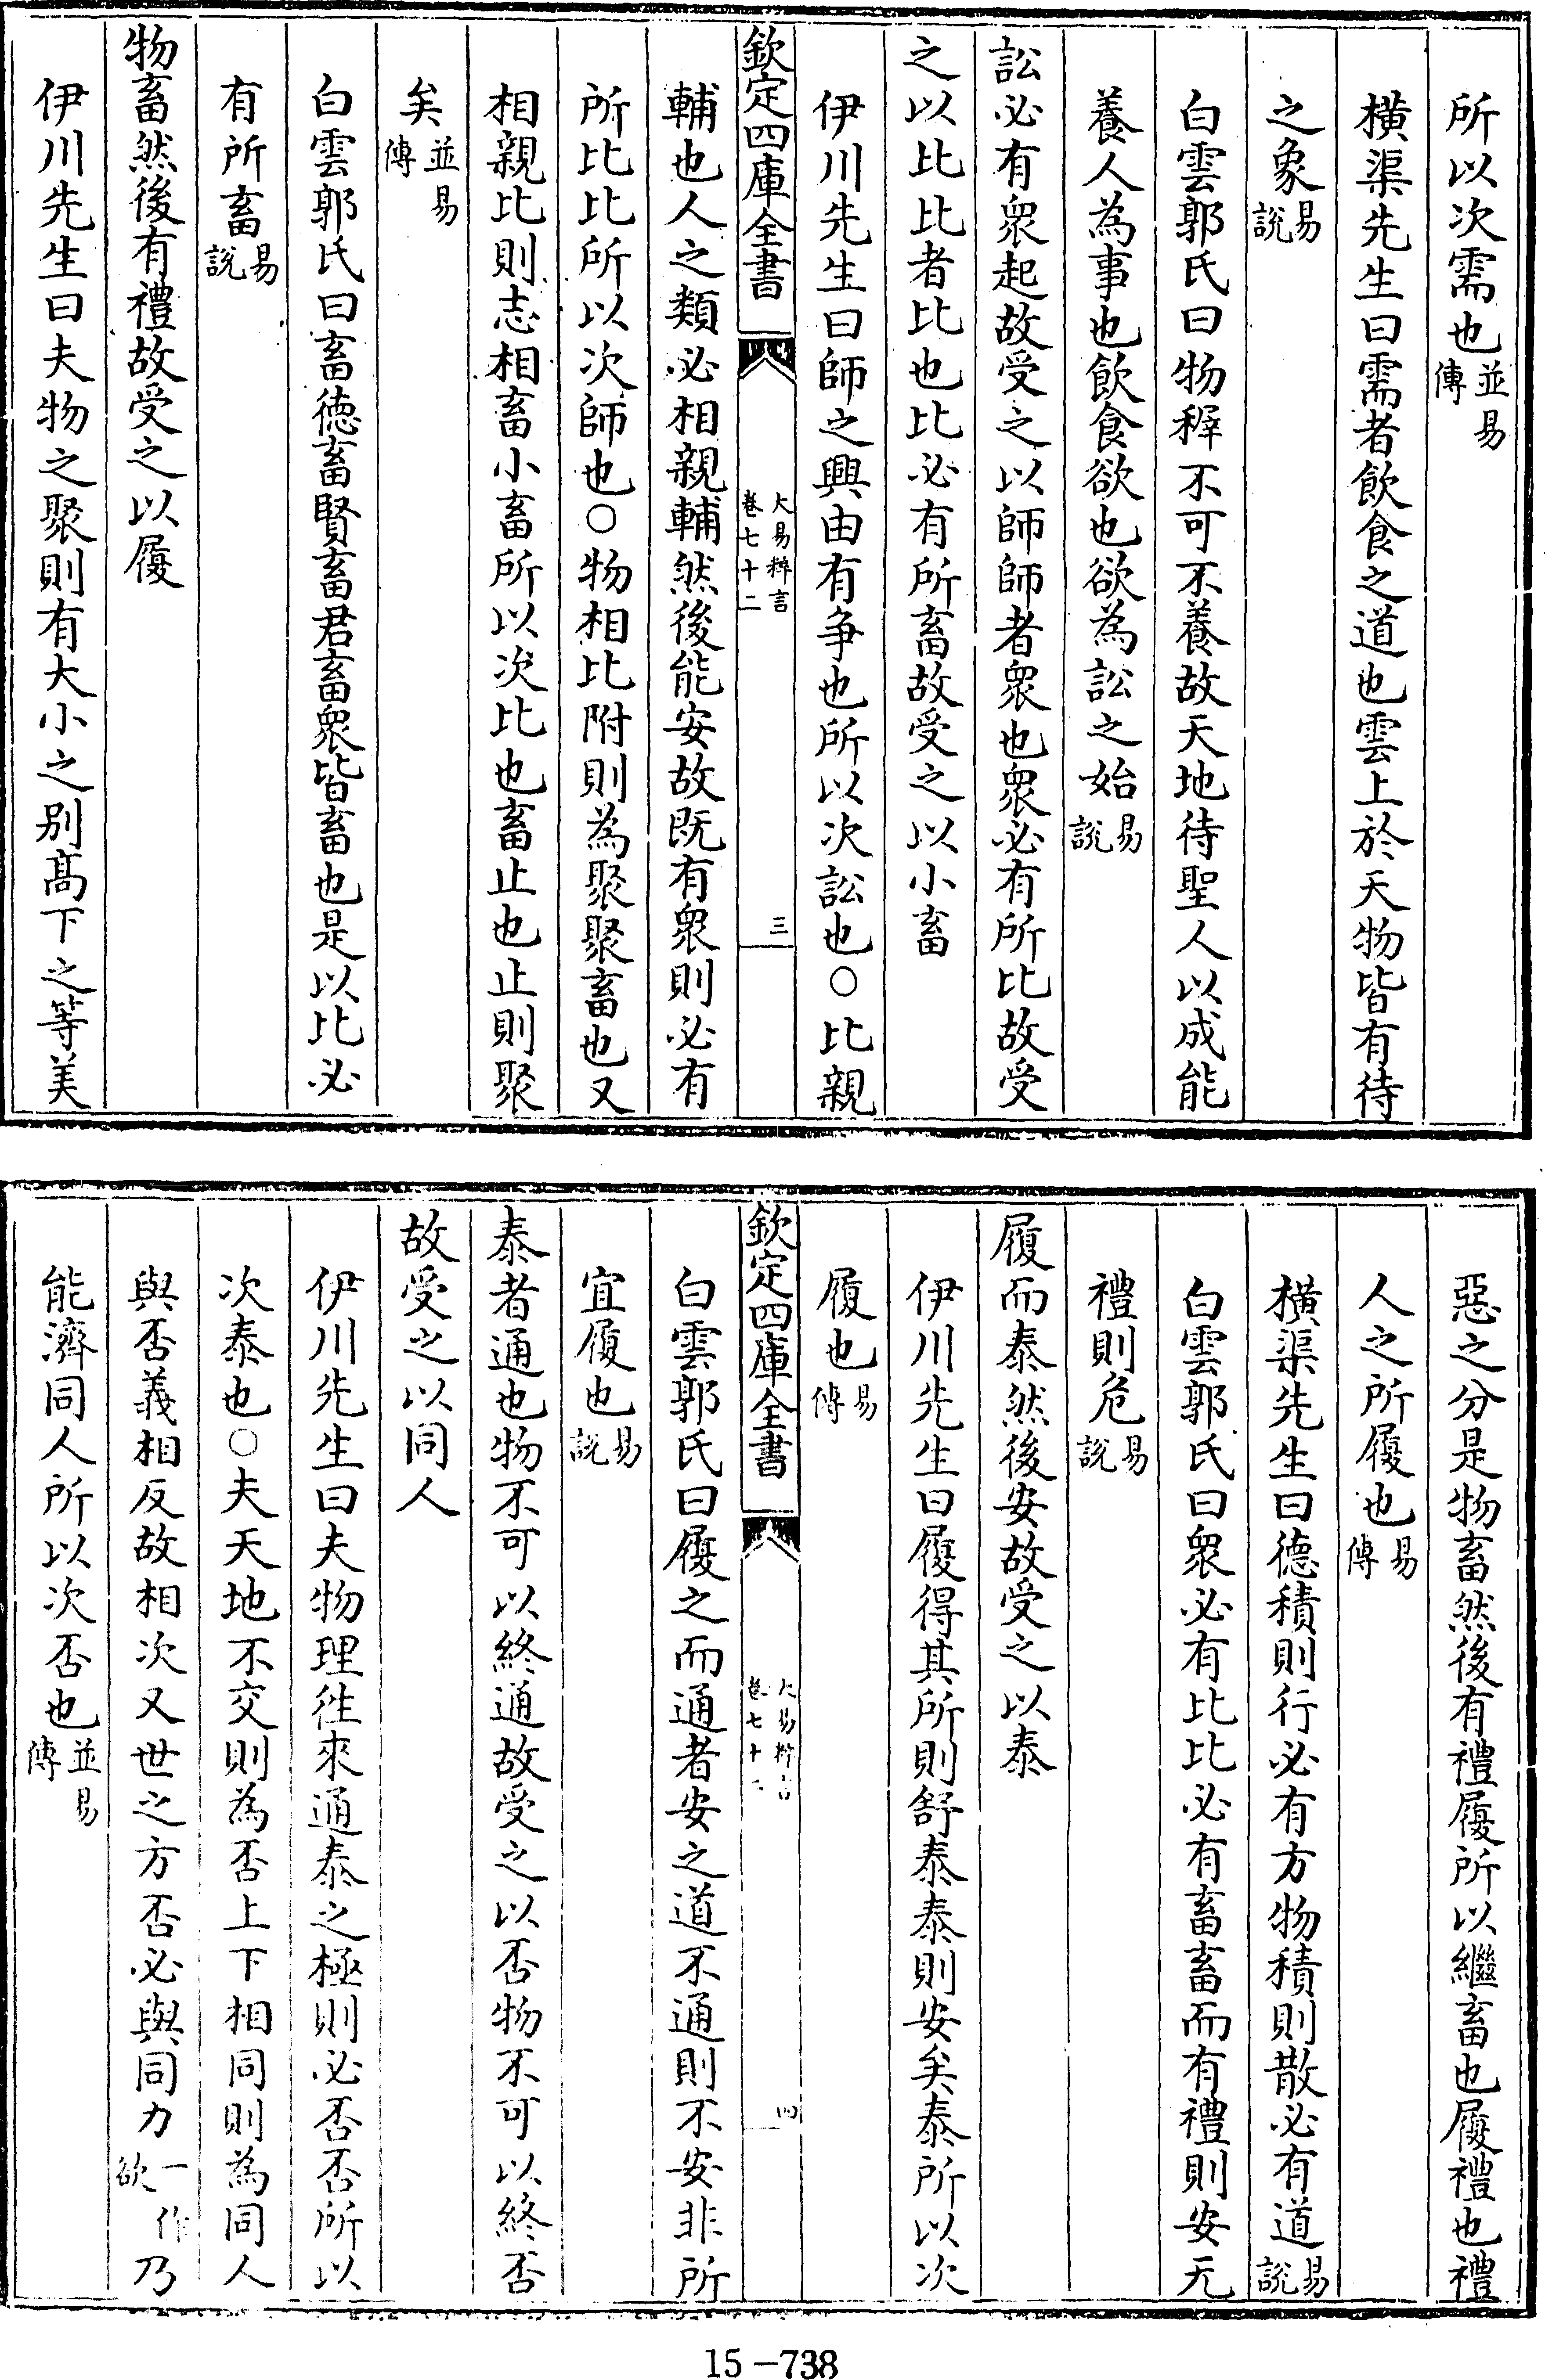 所以次需也並易傳
橫渠先生曰需者飲食之道也雲上於天物皆有待
之象易說
白雲郭氏曰物穉不可不養故天地待聖人以成能
養人為事也飲食欲也欲為訟之始易說
訟必有衆起故受之以師師者衆也衆必有所比故受
之以比比者比也比必有所畜故受之以小畜
伊川先生曰師之興由有争也所以次訟也○比親
欽定四庫全書
大易粹言
卷七十二
三
輔也人之類必相親輔然後能安故既有衆則必有
所比比所以次師也○物相比附則為聚聚畜也又
相親比則志相畜小畜所以次比也畜止也止則聚
矣並易傳
白雲郭氏曰畜德畜賢畜君畜衆皆畜也是以比必
有所畜易說
物畜然後有禮故受之以履
伊川先生曰夫物之聚則有大小之別髙下之等美
惡之分是物畜然後有禮履所以繼畜也履禮也禮
人之所履也易傳
橫渠先生曰德積則行必有方物積則散必有道易說
白雲郭氏曰衆必有比比必有畜畜而有禮則安无
禮則危易說
履而泰然後安故受之以泰
伊川先生曰履得其所則舒泰泰則安矣泰所以次
履也易傳
欽定四庫全書
大易粹言
卷七十二
四
白雲郭氏曰履之而通者安之道不通則不安非所
宜履也易說
泰者通也物不可以終通故受之以否物不可以終否
故受之以同人
伊川先生曰夫物理徃來通泰之極則必否否所以
次泰也○夫天地不交則為否上下相同則為同人
與否義相反故相次又世之方否必與同力一作欲乃
能濟同人所以次否也並易傳
15-738